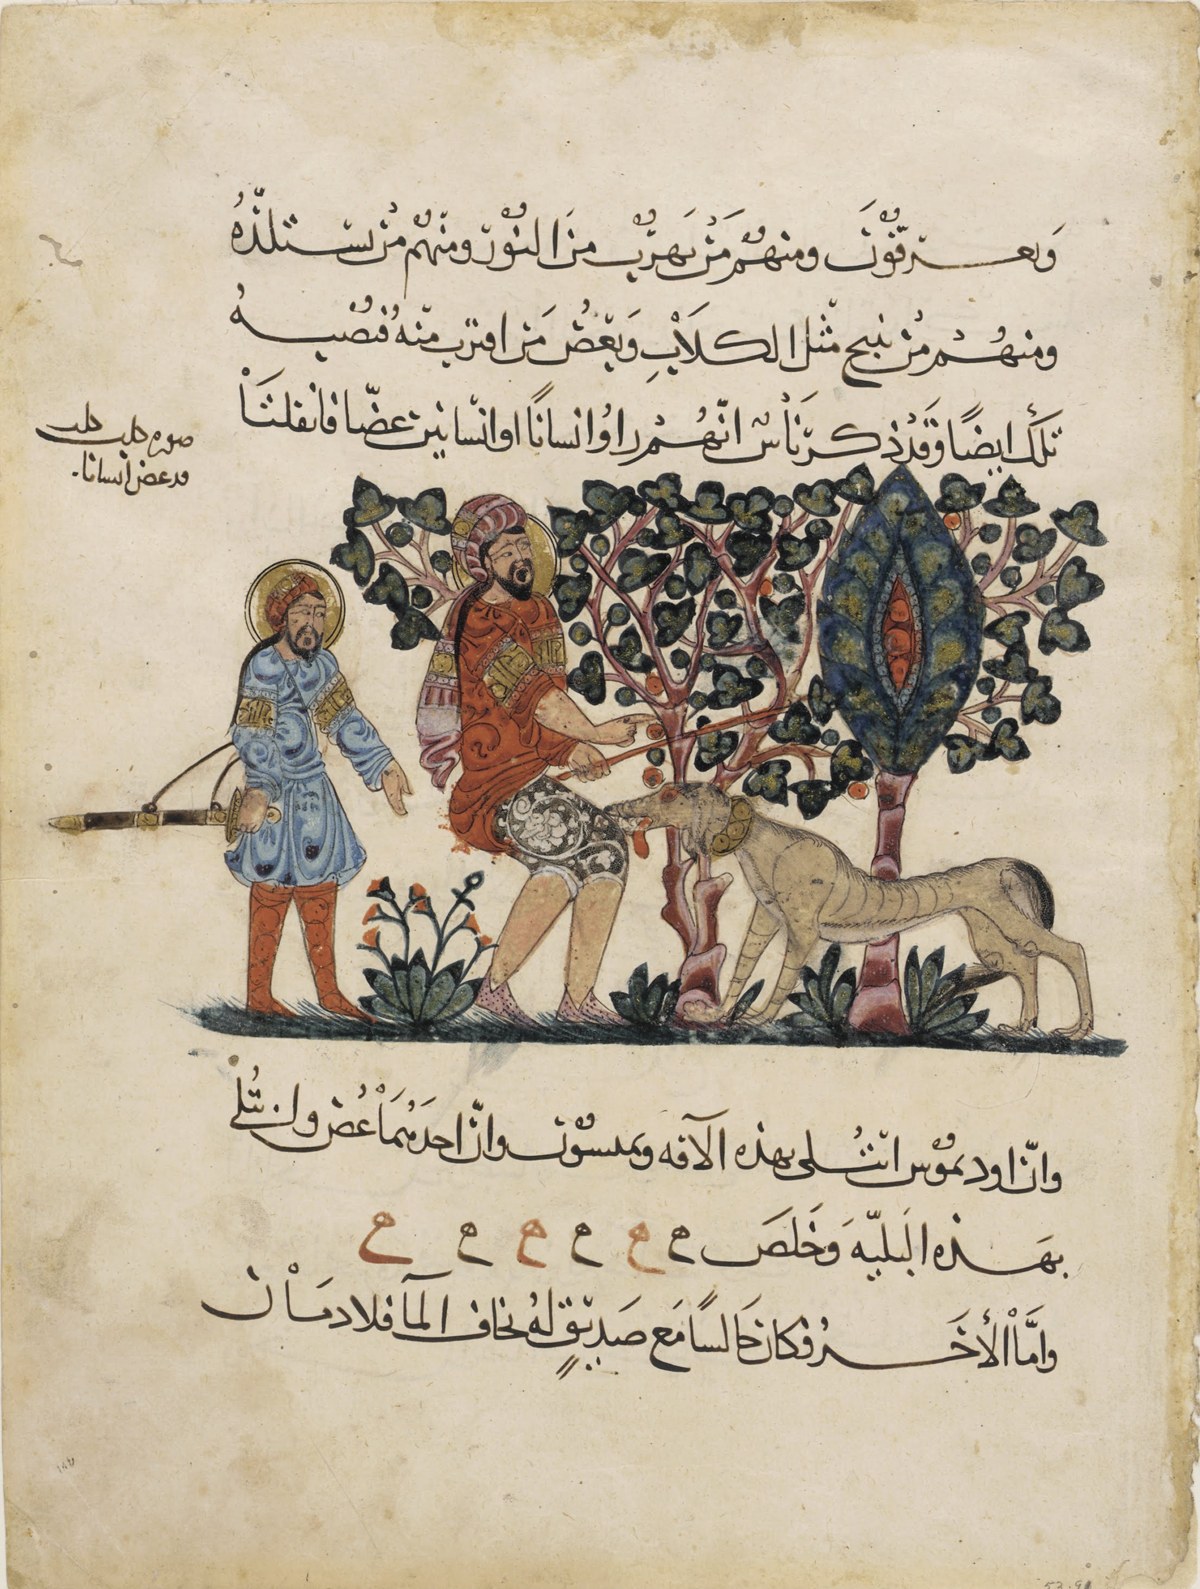 وَيعــرقُوْنَ ومنهُمْ مَنْ يَهرُب مِنَ النُّوْر ومنهُم مَنْ يَسْتلذّهُ
ومنهُمْ مَنْ ينبح مثْل الكلَابِ وَيَعُضُّ مَن اقترب منهُ فتصيبهُ
تلكَ ايضًا وَقَدْ ذكَر نَاسٌ انّهُمْ راوْا انسانًا او انسانين عضّا فانفلتَا
صوره كلب كلب
قد عض انسانا
وانّ اوديموُس ابتُلى بهذه الآفه وانّ احدَهُمَا عُض وان بتُلي
بهَــذه البَليّه وَخَلصَ ه ه ه ه ه ه
وامَّا الأخَــرُ فكان جَالسًا مَعَ صَدِيْقٍ لهُ يخاف المآ فلا دمَــا ان